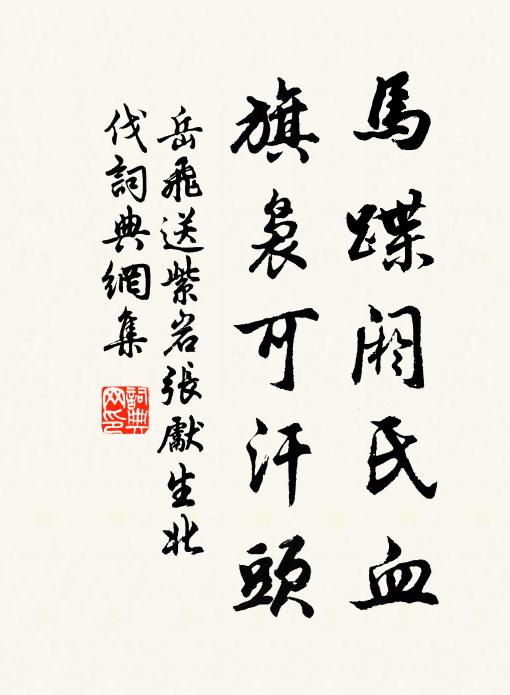 馬蹀閼氏血
旗裊可汗頭
岳飛送紫岩張獻生北
伐詞典網集
詞典网印